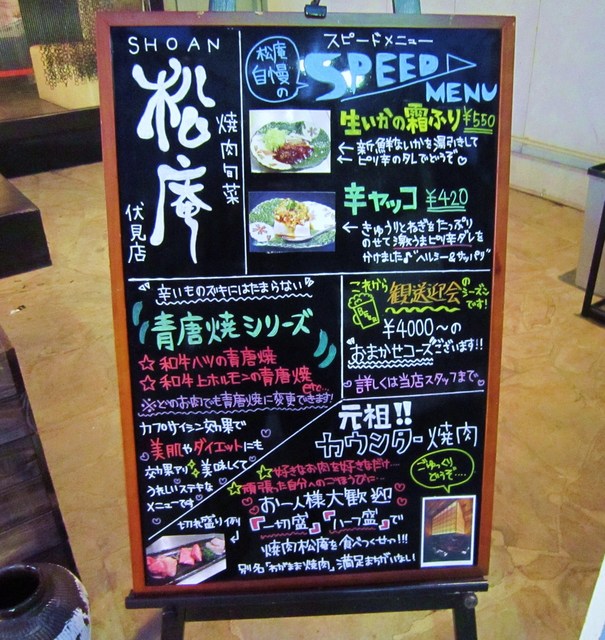 SHOAN
松庵
焼肉旬菜
伏見店
松庵
自慢
の
スピードメニュー
SPEED
MENU
生いかの霜ふり ¥550
← 新鮮ないかを湯引きして
ピリ辛のタレでどうぞ♡
辛ヤッコ ¥420
← きゅうりとねぎをたっぷり
のせて激うまピリ辛ダレを
かけました♪"ヘルシー&サッパリ"
"辛いものズキにはたまらない"
青唐焼シリーズ
☆和牛ハツの青唐焼
☆和牛上ホルモンの青唐焼
etc…
※どのお肉でも青唐焼に変更できます!
カプサイシン効果で
美肌やダイエットにも
効果アリ 美味しくて
うれしいステキな
メニューです♡
切れ盛り例
これから
歓送迎会の
シーズン
です!
BEER
¥4000〜の
"おまかせコース"ございます!!
♡詳しくは当店スタッフまで♡
元祖!!
カウンター焼肉
☆好きなお肉を好きなだけ…
☆頑張った自分へのごほうびに…
ごゆっくり
どうぞ…
♡お一人様大歓迎♡
『一切盛』『ハーフ盛』で
焼肉松庵を食べつくせっ!!!
別名「わがまま焼肉」満足まちがいない